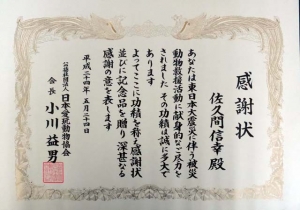 感謝状
佐久間信幸 殿
あなたは東日本大震災に伴う被災
動物救援活動に献身的なご尽力を
されました その功績は誠に多大で
あります
よってここに功績を称え感謝状
並びに記念品を贈り深甚なる
感謝の意を表します
平成二十四年 五月二十日
公益社団法人 日本愛玩動物協会
会長 小川益男